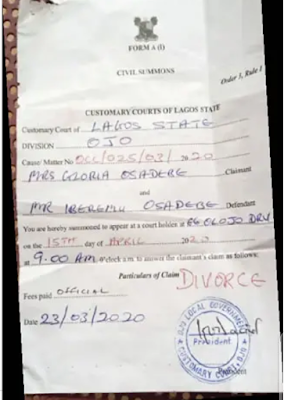 FORM A (I)
CIVIL SUMMONS
Order 1, Rule 1
CUSTOMARY COURTS OF LAGOS STATE
Customary Court of LAGOS STATE
DIVISION OJO
Cause/ Matter No OCC/025/03/ 2020
MRS GLORIA OSADEBE Claimant
and
MR IBEREMU OSADEBE Defendant
You are hereby summoned to appear at a court holden at 66 OLOJO DRV
on the 15TH day of APRIL 2020
at 9.00 AM o'clock a.m. to answer the claimant's claim as follows:
Particulars of Claim DIVORCE
Fees paid OFFICIAL
Date 23/03/2020
OJO LOCAL GOVERNMENT
President
CUSTOMARY COURT OJO
President